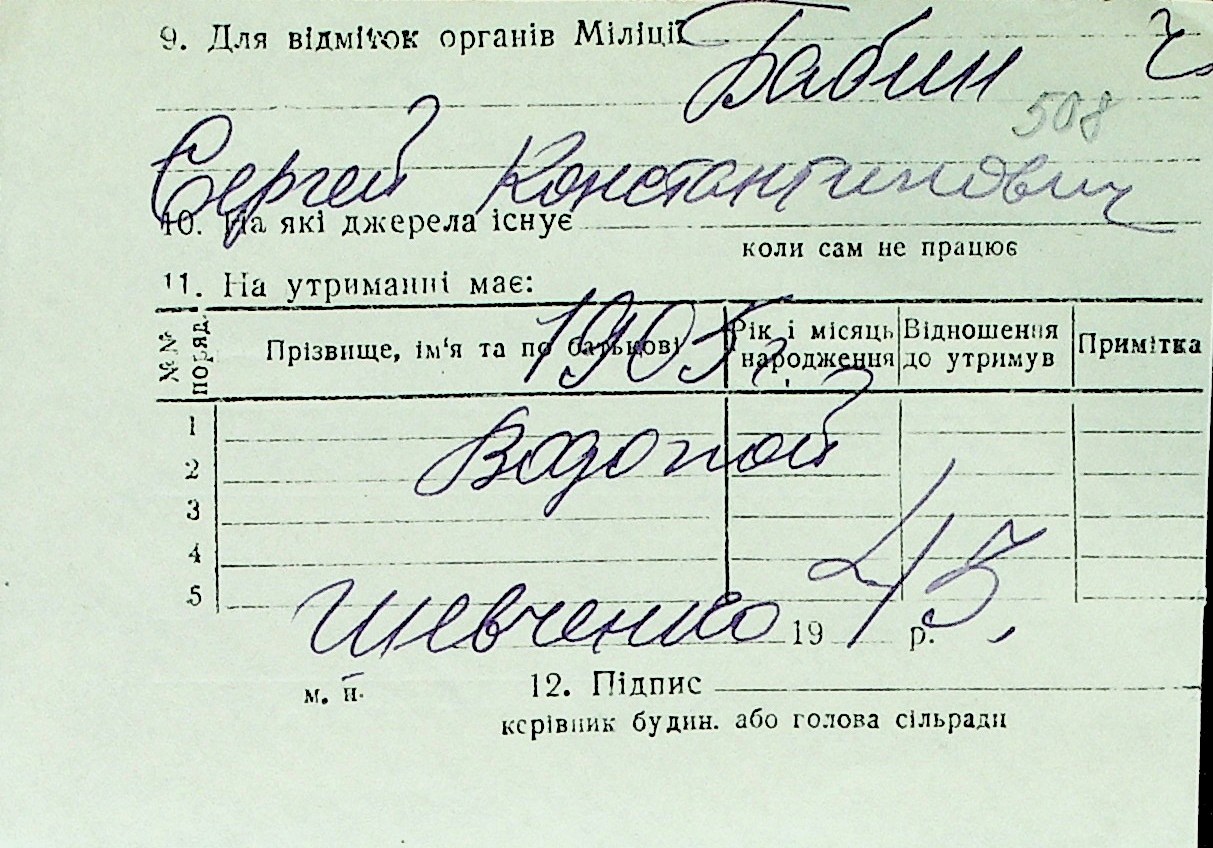 9. Для відміток органів Міліції
Бабин
508
Сергей Константинович
10. На які джерела існує
коли сам не працює
11. На утриманні має:
№№ поряд. Прізвище, ім'я та по батькові Рік і місяць народження Відношення до утримув Примітка
1905 г.
1
Водопой
2
3
4
5
Шевченко 45,
19 р.
м. п.
12. Підпис
керівник будин. або голова сільради